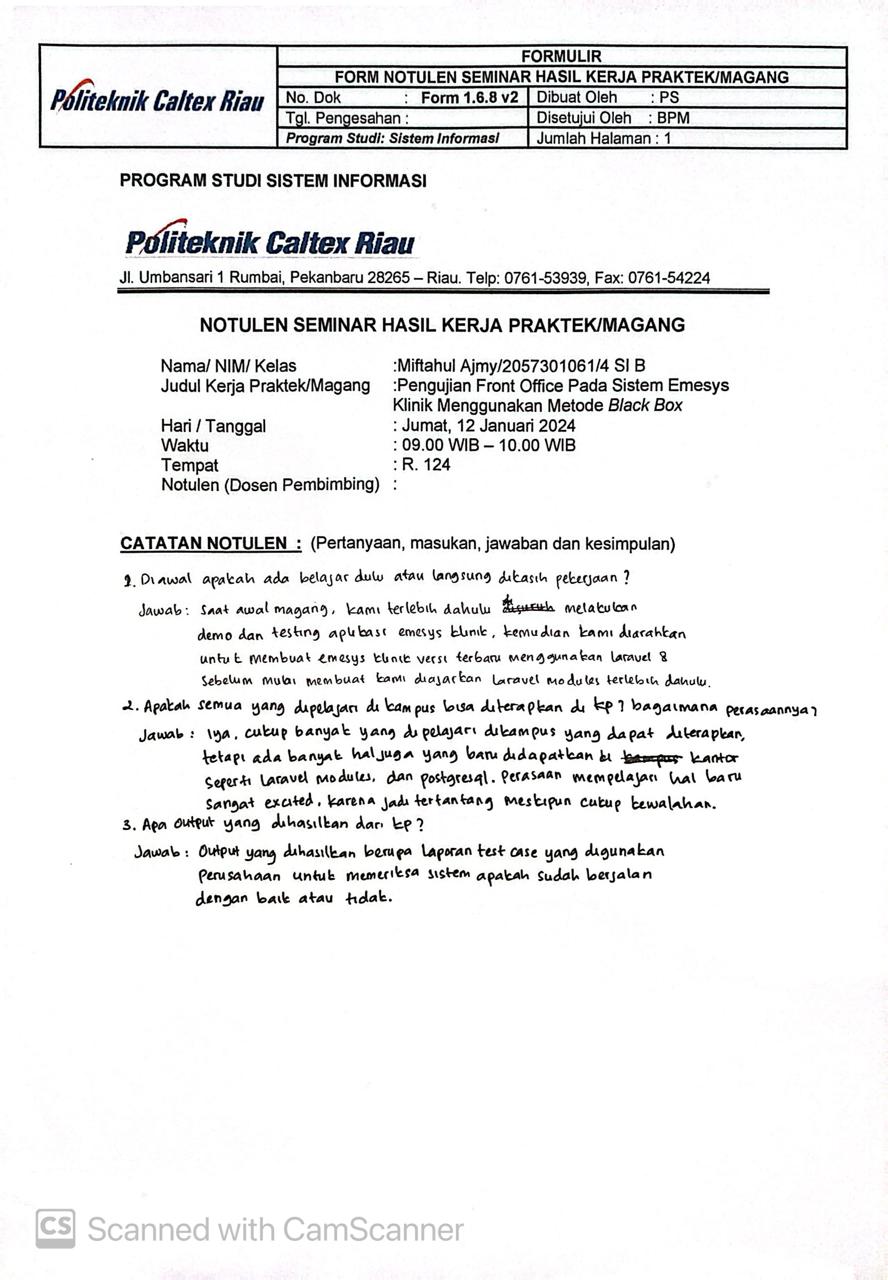 Politeknik Caltex Riau
FORMULIR
FORM NOTULEN SEMINAR HASIL KERJA PRAKTEK/MAGANG
No. Dok : Form 1.6.8 v2 Dibuat Oleh : PS
Tgl. Pengesahan : Disetujui Oleh : BPM
Program Studi: Sistem Informasi Jumlah Halaman : 1
PROGRAM STUDI SISTEM INFORMASI
Politeknik Caltex Riau
Jl. Umbansari 1 Rumbai, Pekanbaru 28265 – Riau. Telp: 0761-53939, Fax: 0761-54224
NOTULEN SEMINAR HASIL KERJA PRAKTEK/MAGANG
Nama/ NIM/ Kelas :Miftahul Ajmy/2057301061/4 SI B
Judul Kerja Praktek/Magang :Pengujian Front Office Pada Sistem Emesys
Klinik Menggunakan Metode Black Box
Hari / Tanggal : Jumat, 12 Januari 2024
Waktu : 09.00 WIB – 10.00 WIB
Tempat : R. 124
Notulen (Dosen Pembimbing) :
CATATAN NOTULEN : (Pertanyaan, masukan, jawaban dan kesimpulan)
1. Diawal apakah ada belajar dulu atau langsung dikasih pekerjaan ?
Jawab : Saat awal magang, kami terlebih dahulu melakukan
demo dan testing aplikasi emesys klinik, kemudian kami diarahkan
untuk membuat emesys klinik versi terbaru menggunakan laravel 8
Sebelum mulai membuat kami diajarkan Laravel modules terlebih dahulu.
2. Apakah semua yang dipelajari di kampus bisa diterapkan di kp ? bagaimana perasaannya?
Jawab : Iya, cukup banyak yang di pelajari dikampus yang dapat diterapkan,
tetapi ada banyak hal juga yang baru didapatkan di kampus kantor
Seperti Laravel modules, dan postgresql. Perasaan mempelajari hal baru
sangat excited, karena jadi tertantang meskipun cukup kewalahan.
3. Apa output yang dihasilkan dari kp ?
Jawab : Output yang dihasilkan berupa laporan test case yang digunakan
Perusahaan untuk memeriksa sistem apakah sudah berjalan
dengan baik atau tidak.
CS Scanned with CamScanner